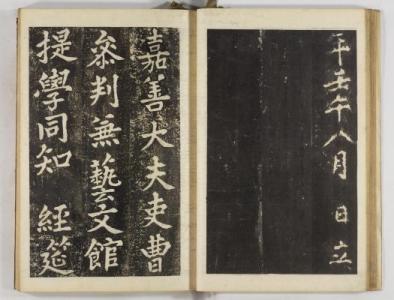 平壬午八月　日立
嘉善大夫吏曹
叅判兼藝文館
提學同知　經筵